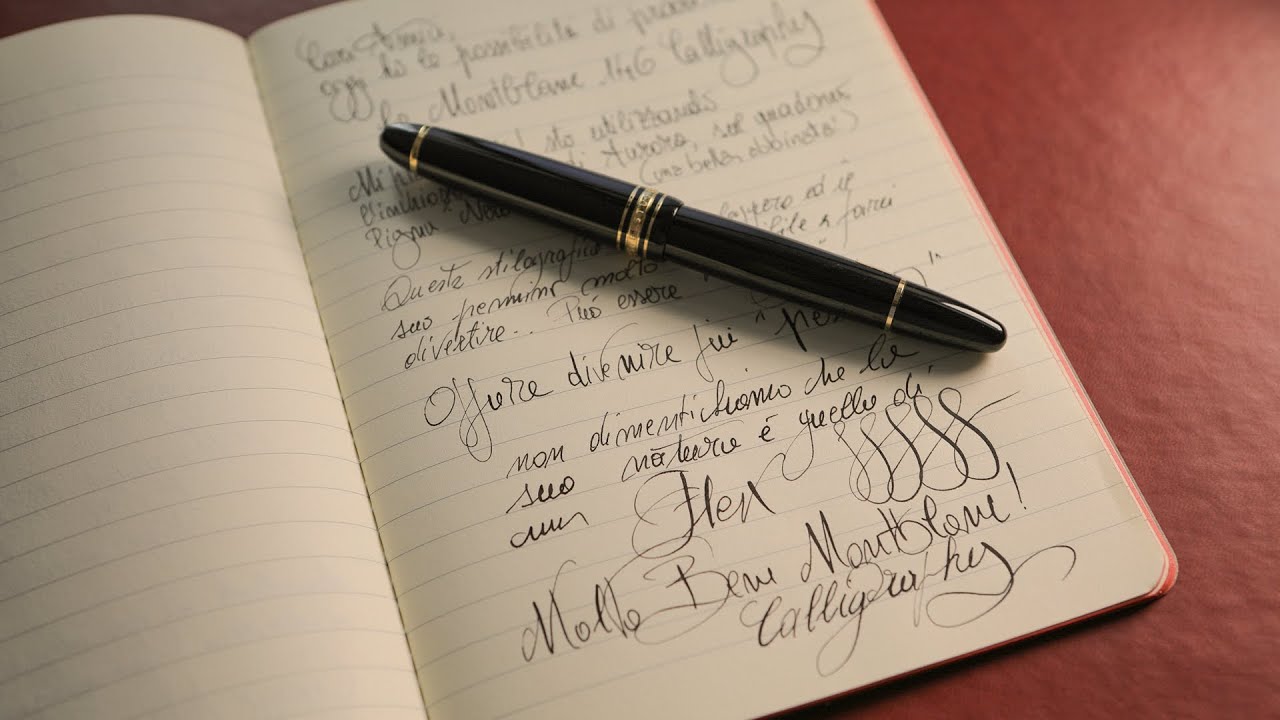 Cari Amici,
oggi ho la possibilità di provare
la Montblanc 146 Calligraphy
sto utilizzando
di Aurora, sul quaderno
Pigna Nero (una bella abbinata!)
Questa stilografica ed il
suo pennino molto farci
divertire... Può essere
Oppure divenire più "
non dimentichiamo che la
sua natura è quella di
una Flex
Molto Bene Montblanc!
Calligraphy